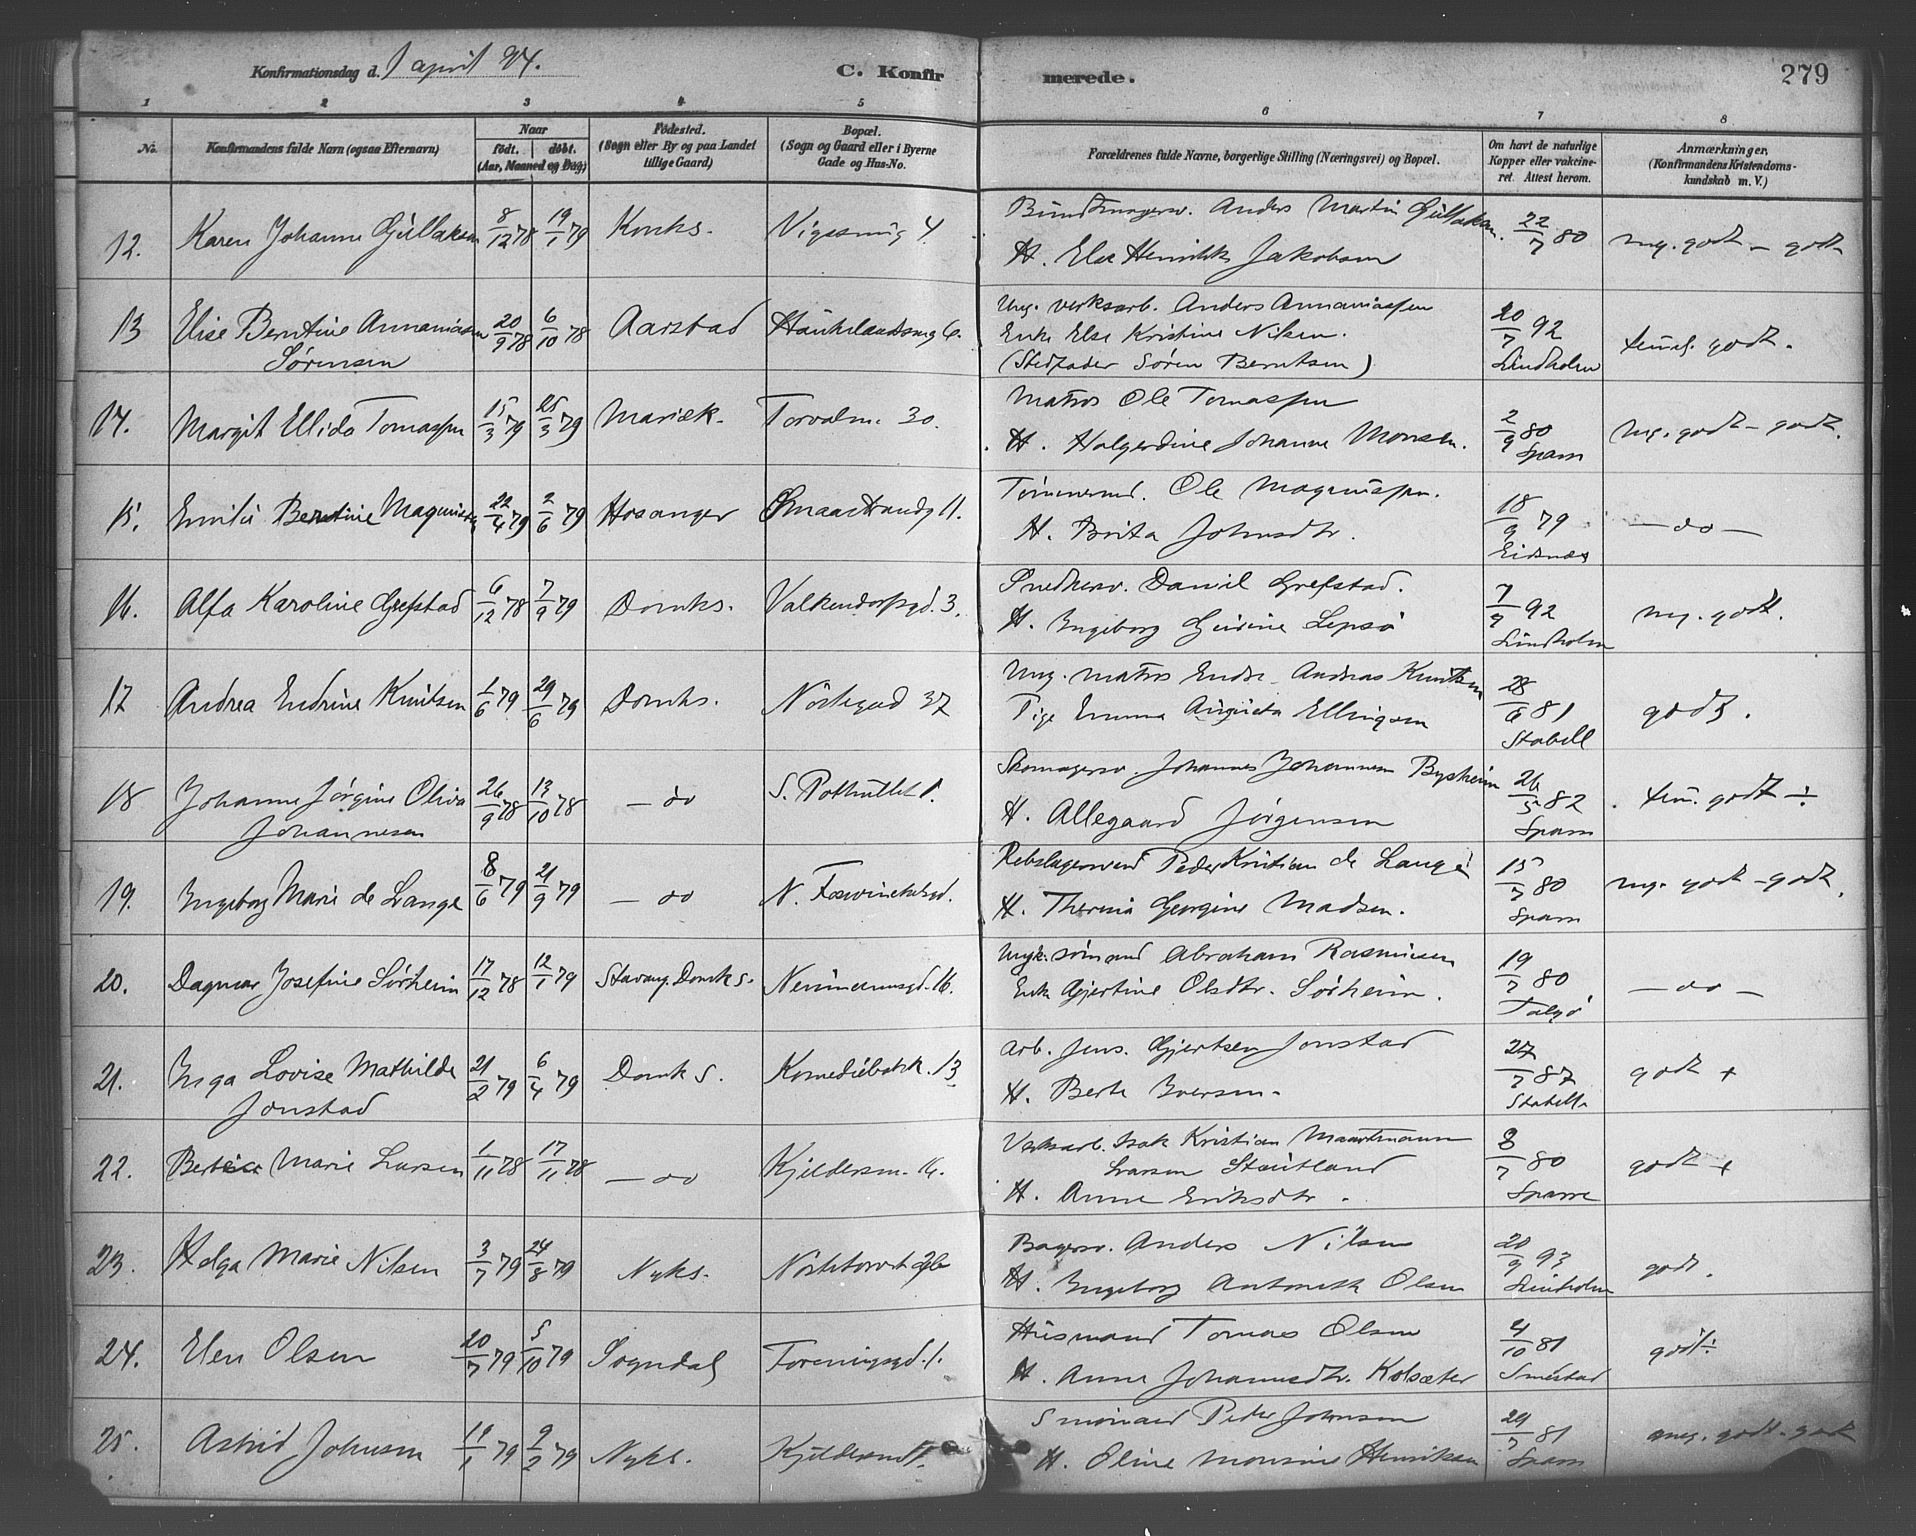 Konfirmationsdag d. 1 april 94.
C. Konfir
merede.
279
1 2 3 4 5 6 7 8
No.
Konfirmandens fulde Navn (ogsaa Efternavn)
Naar
født. døbt.
(Aar, Maaned og Dag)
Fødested.
(Sogn eller By og paa Landet
tillige Gaard)
Bopæl.
(Sogn og Gaard eller i Byerne
Gade og Hus-No.
Forældrenes fulde Navne, borgerlige Stilling (Næringsvei) og Bopæl.
Om havt de naturlige
Kopper eller vakcine-
ret. Attest herom.
Anmærkninger,
(Konfirmandens Kristendoms-
kundskab m. V.)
12. Karen Johanne Gullaksen 8/12 78 19/1 79 Korsks. 4. Anders Martin Gullaksen. 22/7 80 mg. godt - godt
H. Else Henrikke Jakobsen
13 Elise Berntine Annaniassen 20/9 78 6/10 78 Aarstad Haukelandsveg 6. Ung. verksarb. Anders Annaniassen 20/7 92
Enke Else Kristine Nilsen. teml. godt.
Sørensen (Stedfader Søren Berntsen) Lindholm
14. Margit Ellida Tomassen 15/3 79 25/3 79 Mariæk. Torvalm. 30. Matros Ole Tomassen 2/9 80 mg. godt - godt.
H. Holgerdine Johanne Monsen. Sparre
15. Emilie Berntine Magnussen 22/4 79 2/6 79 Hosanger Smaastrandg 11. Tømmermd. Ole Magnussen. 18/9 79 - do -
H. Brita Johnsdtr. Eidsnes
16. Alfa Karoline Grefstad 6/12 78 7/9 79 Domks. Valkendorfsgd. 3. Snedkersv. Daniel Grefstad. 7/9 92 mg. godt.
H. Ingeborg Gurine Lepsø Lindholm
17 Andrea Endrine Knutsen 1/6 79 29/6 79 Domks. Nøstegad 37 Ung. matros Endre Andreas Knutsen 28/6 81 godt.
Pige Emma Augusta Ellingsen Stabell
18 Johanne Jørgine Oliva 26/9 78 13/10 78 - do S. 1. Skomagersv. Johannes Johannesen Bysheim 26/5 82 tem. godt ÷
Johannesen H. Allegaard Jørgensen Sparre
19. Ingeborg Marie de Lange 8/6 79 21/9 79 - do N. Rebslagersvend Peder Kristian de Lange 15/7 80 mg. godt - godt.
H. Theresia Georgine Madsen. Sparre
20. Dagmar Josefine Sørheim 17/12 78 12/1 79 Stavang. Domks. Neumannsgd. 16. sømand Abraham Rasmusen 19/7 80 - do -
Enke Gjertine Olsdtr. Sørheim. Talgø
21. Inga Lovise Mathilde 21/2 79 6/4 79 Domks. Komediebakk. 13 Arb. Jens Gjertsen Jonstad 27/7 87 godt +
Jonstad H. Berte Iversen. Stabell
22. Marie Larsen 1/11 78 17/11 78 - do Kjeldersm. 16. Verksarb. Isak Kristian Maartmann 8/7 80 godt +
Larsen Støutland
H. Anne Eriksdtr. Sparre
23. Helga Marie Nilsen 3/7 79 24/8 79 Nyks. Nøstetorvet Bagersv. Anders Nilsen 20/9 93 godt.
H. Ingeborg Antonette Olsen Lindholm
24. Elen Olsen 20/7 79 5/10 79 Sogndal Foreningsgd. 1. Husmand Tomas Olsen 4/10 81 godt ÷
H. Anna Johannesdtr. Kolsæter Smestad
25. Astrid Johnsen 19/1 79 9/2 79 Nyks. Peder Johnsen 29/7 81 mg. godt - godt
H. Oline Monsine Henriksen Sparre